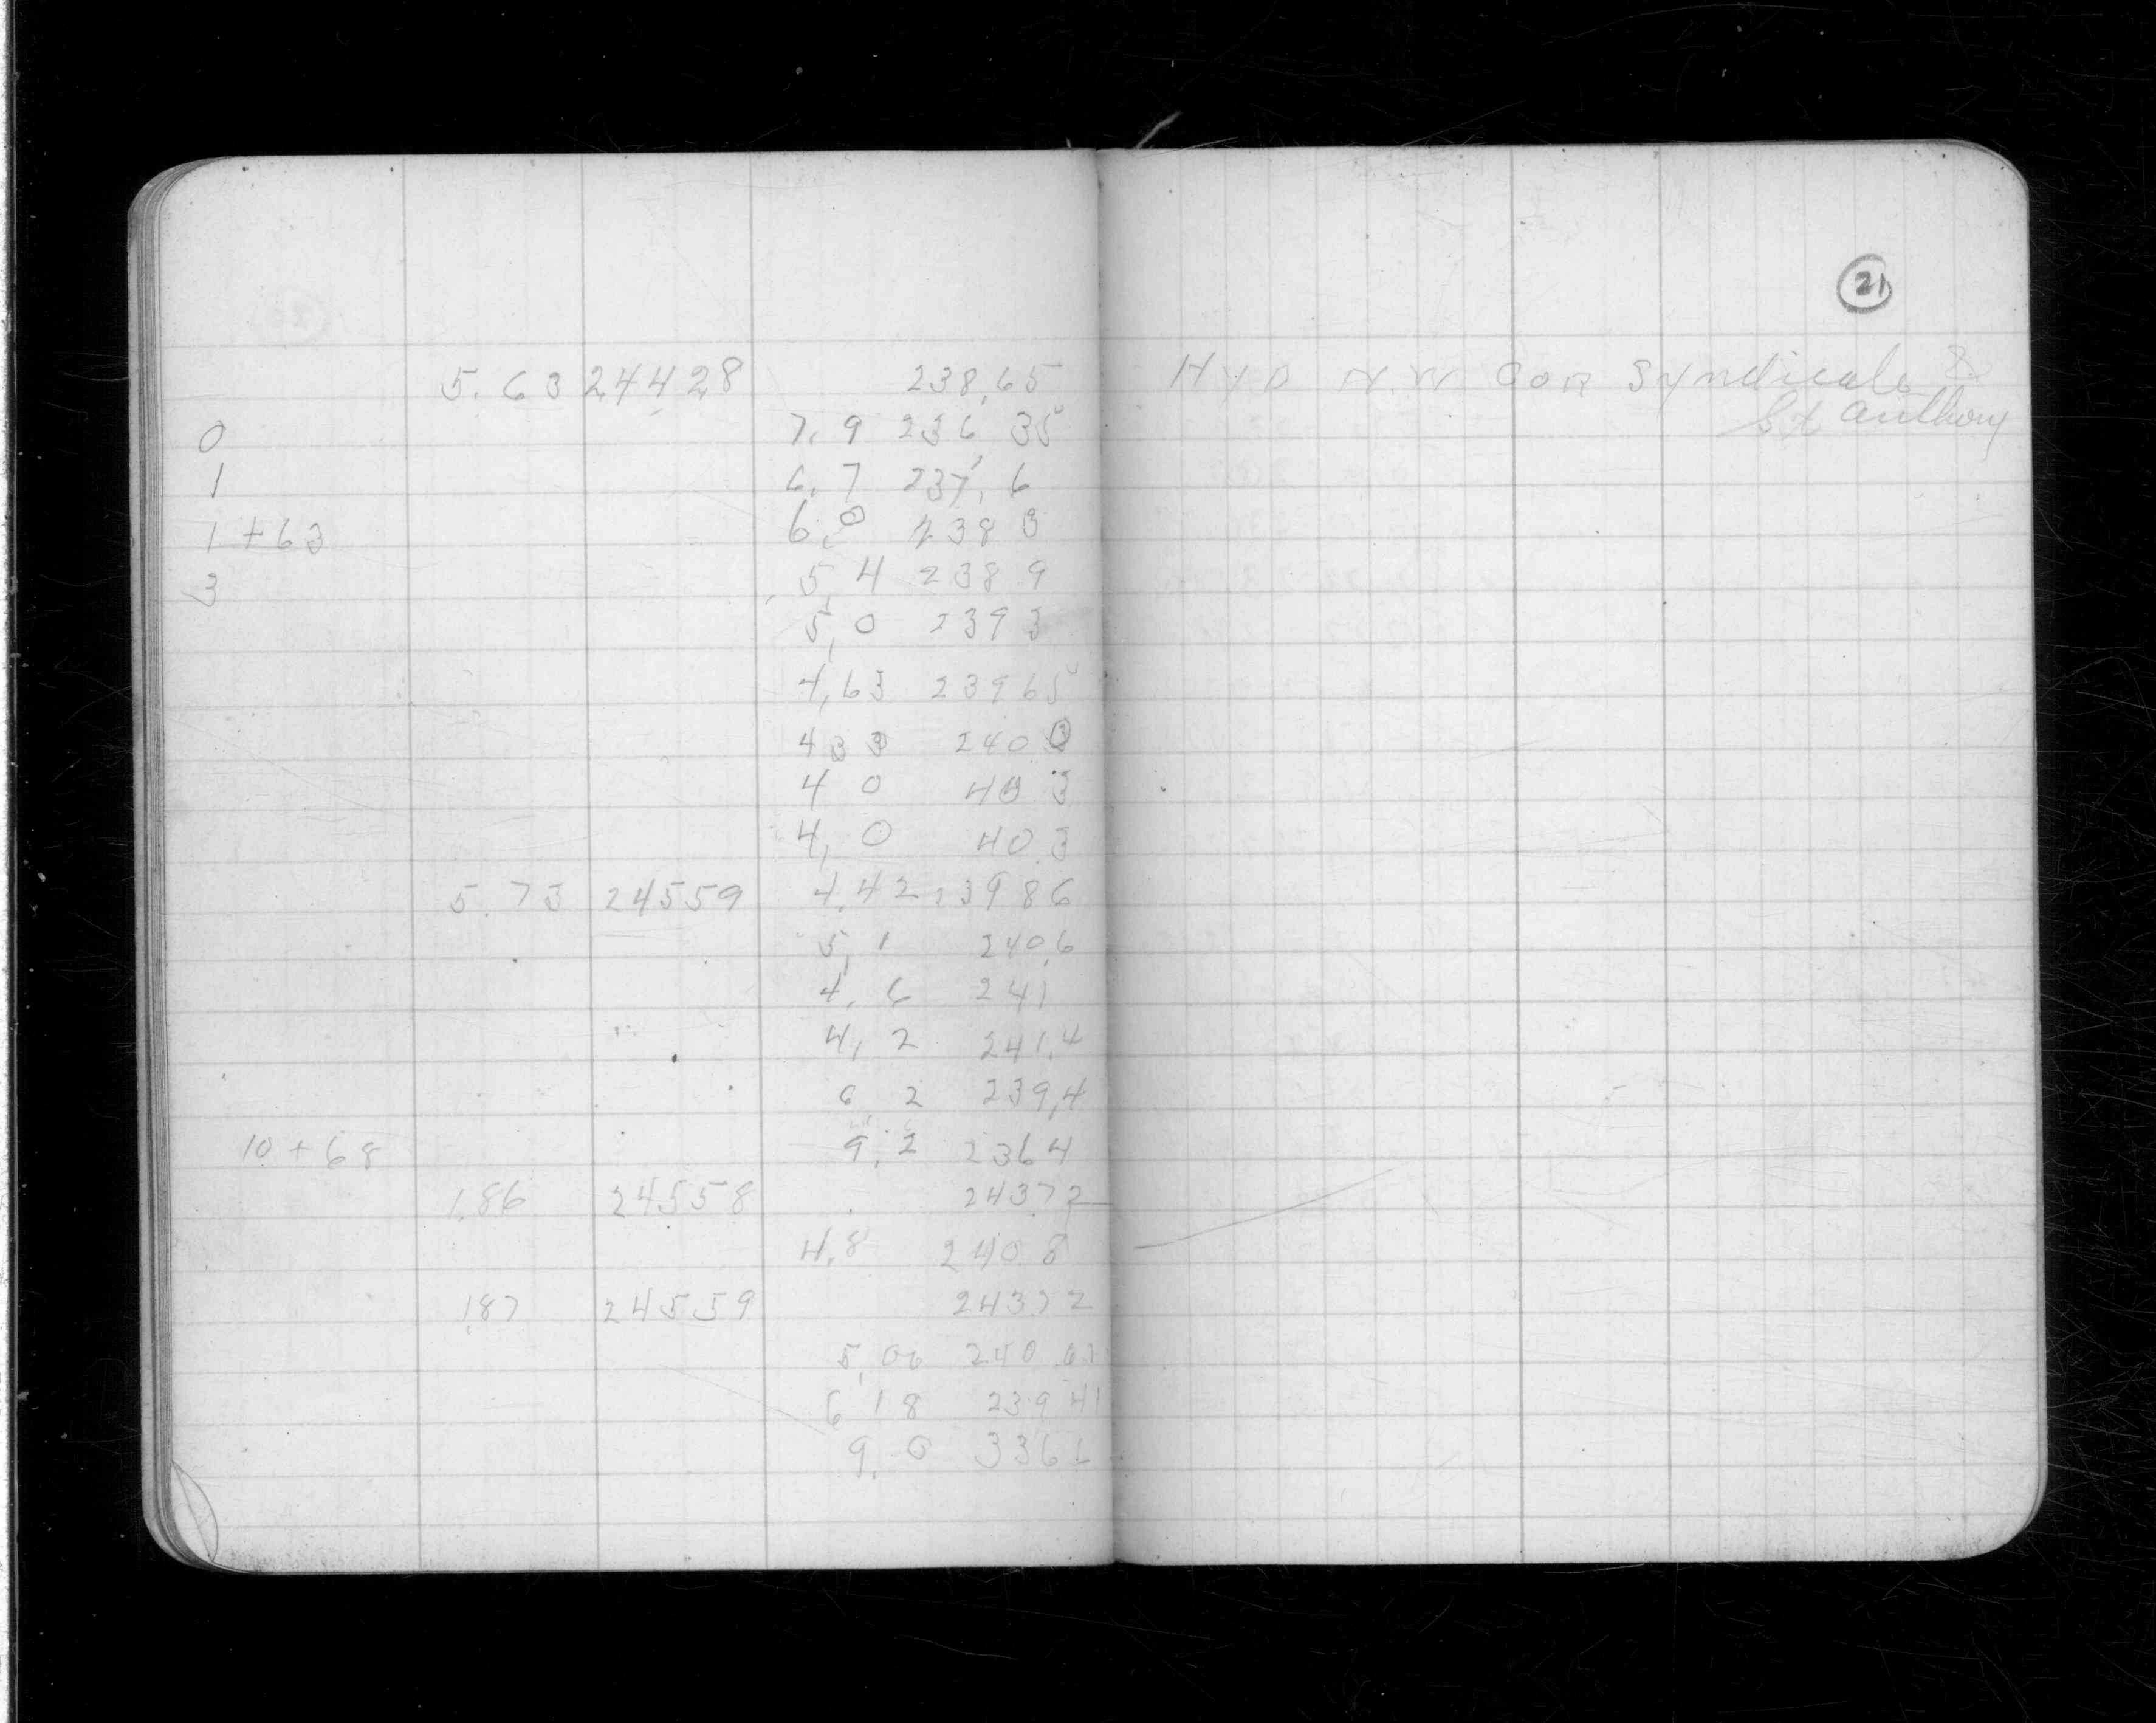 21
5.63 24428 238,65 HYD N.W COR Syndicate &
St Anthony
0 7,9 236,35
1 6,7 237,6
1+63 6,0 238 3
3 5,4 238 9
5,0 239 3
4,63 239 65
4 33 240 0
4 0 40 3
4,0 40.3
5.73 24559 4.42 23986
5,1 240,6
4,6 241
4,2 241,4
6,2 239,4
10+68 9,2 236 4
1.86 24558 24372
4.8 240 8
187 24559 24372
5,06
6 18 239 41
9.0 336 6